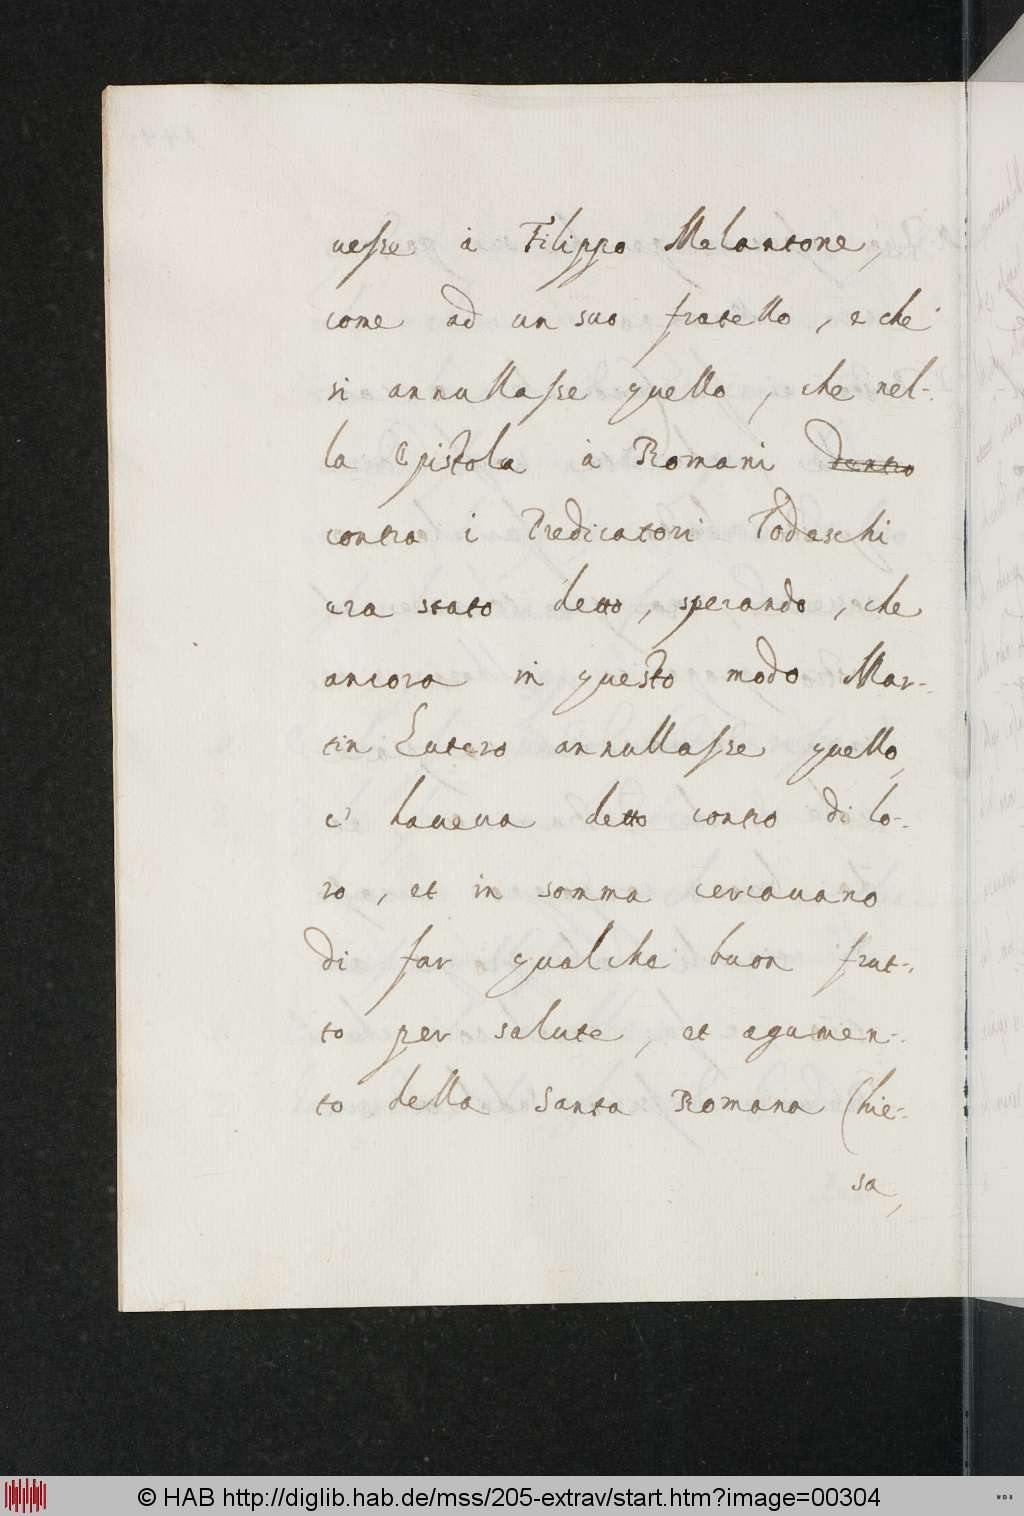 uesse à Filippo Melantone,
come ad un suo fratello, e che
si annullasse quello, che nel-
la Epistola à Romani dentro
contra i Predicatori Todeschi
era stato detto, sperando, che
ancora in questo modo Mar-
tin Lutero annullasse quello,
c' haueua detto contro di lo-
ro, et in somma cercauano
di far qualche buon frut-
to per salute, et agumen-
to della Santa Romana Chie-
sa,
© HAB http://diglib.hab.de/mss/205-extrav/start.htm?image=00304